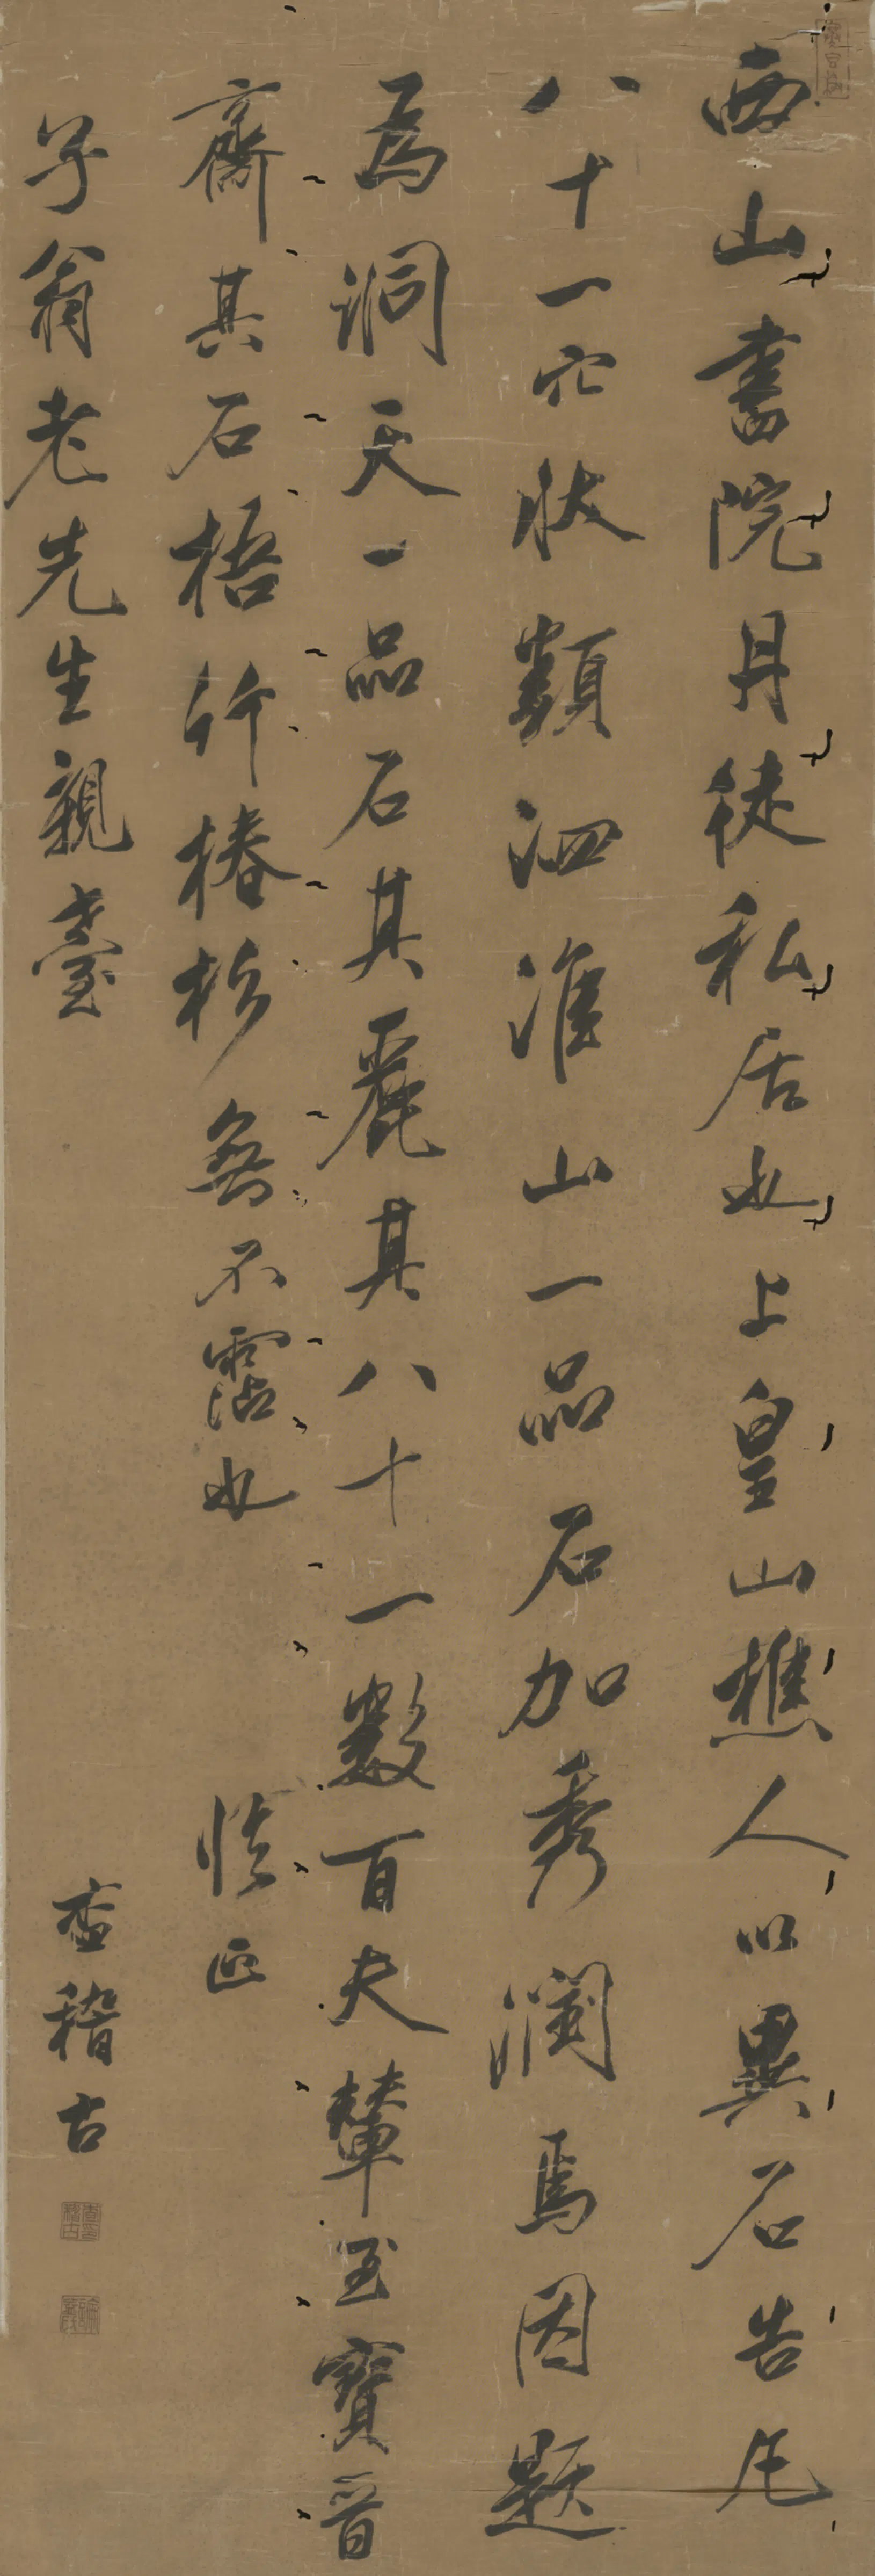 西山書院丹徒私居也上皇山樵人以異石告凡
八十一穴狀類泗淮山一品石加秀潤焉因題
為洞天一品石其麗其八十一數百夫輦至寶晉
齋其石梧竹椿杉無不霑也
正
子翁老先生親臺
查稽古